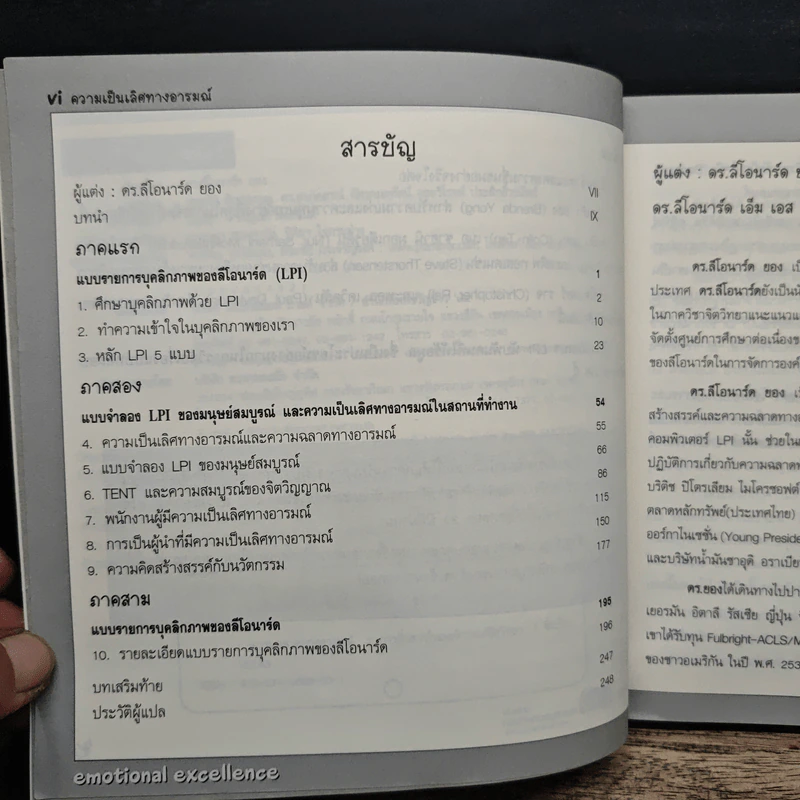 vi ความเป็นเลิศทางอารมณ์
สารบัญ
ผู้แต่ง : ดร.ลีโอนาร์ด ยอง VII
บทนำ IX
ภาคแรก
แบบรายการบุคลิกภาพของลีโอนาร์ด (LPI) 1
1. ศึกษาบุคลิกภาพด้วย LPI 2
2. ทำความเข้าใจในบุคลิกภาพของเรา 10
3. หลัก LPI 5 แบบ 23
ภาคสอง
แบบจำลอง LPI ของมนุษย์สมบูรณ์ และความเป็นเลิศทางอารมณ์ในสถานที่ทำงาน 54
4. ความเป็นเลิศทางอารมณ์และความฉลาดทางอารมณ์ 55
5. แบบจำลอง LPI ของมนุษย์สมบูรณ์ 66
6. TENT และความสมบูรณ์ของจิตวิญญาณ 86
7. พนักงานผู้มีความเป็นเลิศทางอารมณ์ 115
8. การเป็นผู้นำที่มีความเป็นเลิศทางอารมณ์ 150
9. ความคิดสร้างสรรค์กับนวัตกรรม 177
ภาคสาม
แบบรายการบุคลิกภาพของลีโอนาร์ด 195
10. รายละเอียดแบบรายการบุคลิกภาพของลีโอนาร์ด 196
บทเสริมท้าย 247
ประวัติผู้แปล 248
emotional excellence
ผู้แต่ง : ดร.ลีโอนาร์ด
ดร.ลีโอนาร์ด เอ็ม เอส
ดร.ลีโอนาร์ด ยอง
ประเทศ ดร.ลีโอนาร์ดยังเป็น
ในภาควิชาจิตวิทยาแนะแนว
จัดตั้งศูนย์การศึกษาต่อเนื่อง
ของลีโอนาร์ดในการจัดการองค์
ดร.ลีโอนาร์ด ยอง
สร้างสรรค์และความฉลาดทาง
คอมพิวเตอร์ LPI นั้น ช่วยใน
ปฏิบัติการเกี่ยวกับความฉลาด
บริติช ปิโตรเลียม ไมโครซอฟต์
ตลาดหลักทรัพย์(ประเทศไทย)
ออร์กาไนเซชั่น (Young Preside
และบริษัทน้ำมันซาอุดิ อราเบีย
ดร.ยองได้เดินทางไป
เยอรมัน อิตาลี รัสเซีย ญี่ปุ่น
เขาได้รับทุน Fulbright-ACLS/M
ของชาวอเมริกัน ในปี พ.ศ. 253